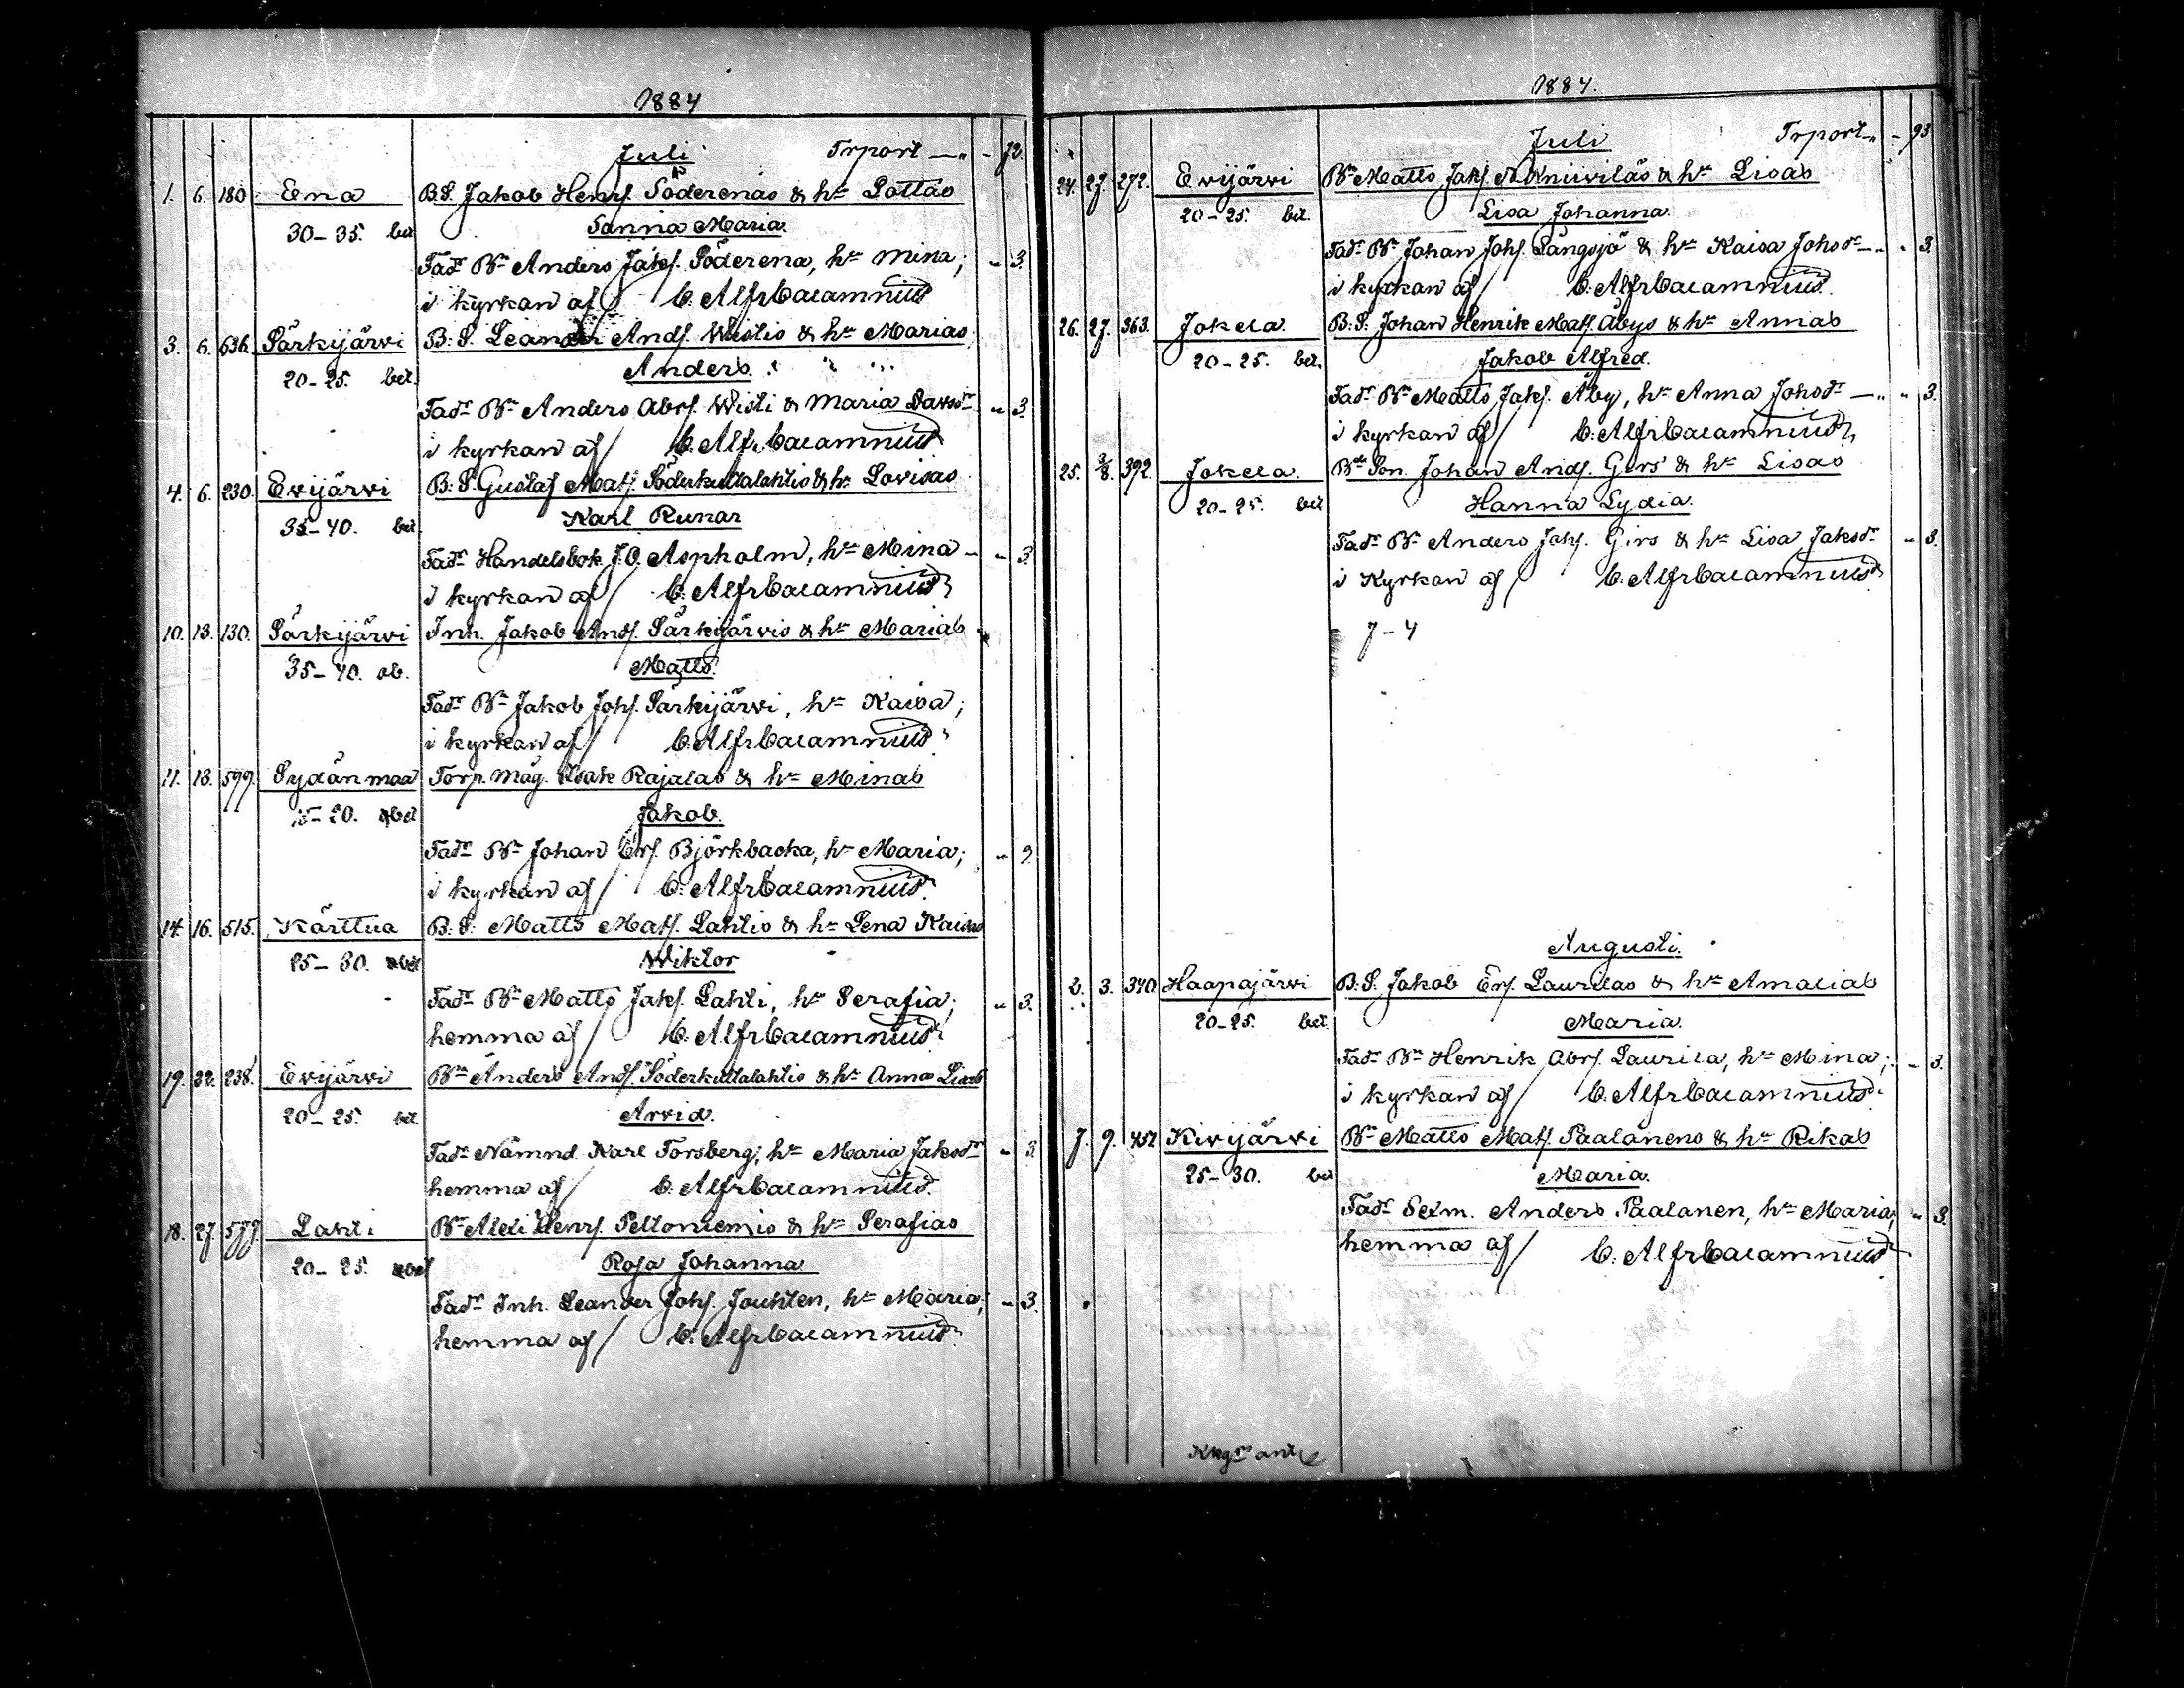 1884
Juli Trport — " - 72.
1. 6. 180. Ena B.S. Jakob Henr. Söderenas & hn Lottas
30-35. bet Sanna Maria.
Fadr Bn Anders Jakf. Söderena, hn Mina; " 3.
i kyrkan af C. Alfr Calamnius
3. 6. 636. Särkijärvi B.S. Leander Andf. Wistis & hn Marias
20-25. bet. Anders.
Fadr Bn Anders Abrf. Wisti & Maria Davsdr " 3.
i kyrkan af C. Alfr Calamnius
4. 6. 230. Evijärvi B.S. Gustaf Matf. Söderkultalahtis & hn Lovisas
35-40. bet Karl Runar
Fadr Handelsbok. J.O. Aspholm, hn Mina - " 3.
i kyrkan af C. Alfr Calamnius
10. 13. 130. Särkijärvi Inh. Jakob Andf. Särkijärvis & hn Marias
35-40. ob. Matts.
Fadr Bn Jakob Johf. Särkijärvi, hn Kaisa;
i kyrkan af C. Alfr Calamnius
11. 13. 599. Sydänmaa Torp. Måg. Isak Rajalas & hn Minas
15-20. bet Jakob.
Fadr Bn Johan Erf. Björkbacka, hn Maria; " 3
i kyrkan af C. Alfr Calamnius
14. 16. 515. Kärttua B.S. Matts Matf. Lahtis & hn Lena Kaisas
25-30. bet Wiktor
Fadr Bn Matts Jakf. Lahti, hn Serafia; " 3.
hemma af C. Alfr Calamnius
19. 22. 238. Evijärvi Bn Anders Andf. Söderkultalahtis & hn Anna Lisas
20-25. bet Arvid.
Fadr Nämnd Karl Forsberg, hn Maria Jaksdr " 3.
hemma af C. Alfr Calamnius
18. 27. 577. Lahti Bn Alexi Henrf. Peltoniemis & hn Serafias
20-25. bet Rosa Johanna
Fadr Inh. Leander Johf. Jouhten, hn Maria; " 3.
hemma af C. Alfr Calamnius
1884.
Juli Trport " - 93
24. 27. 272. Evijärvi Bn Matts Jakf. Niinivilas & hn Lisas
20-25. bet. Lisa Johanna.
Fadr Bn Johan Johf. Långsjö & hn Kaisa Johsdr — " " 3.
i kyrkan af C. Alfr Calamnius
26. 27. 363. Jokela B.S. Johan Henrik Matf. Åbys & hn Annas
20-25. bet. Jakob Alfred.
Fadr Bn Matts Jakf. Åby, hn Anna Johsdr — " " 3.
i kyrkan af C. Alfr Calamnius
25. 3/8. 392. Jokela Bde Son. Johan Andf. Girs & hn Lisas
20-25. bet Hanna Lydia.
Fadr Bn Anders Johf. Girs & hn Lisa Jaksdr " 3.
i Kyrkan af C. Alfr Calamnius
7-4
Augusti.
2. 3. 340 Haapajärvi B.S. Jakob Erf. Laurilas & hn Amalias
20-25. bet. Maria.
Fadr Bn Henrik Abrf. Laurila, hn Mina; " 3.
i kyrkan af C. Alfr Calamnius
7. 9. 452 Kivijärvi Bn Matts Matf. Paalanens & hn Rikas
25-30. bet Maria.
Fadr Sexm. Anders Paalanen, hn Maria; " 3.
hemma af C. Alfr Calamnius